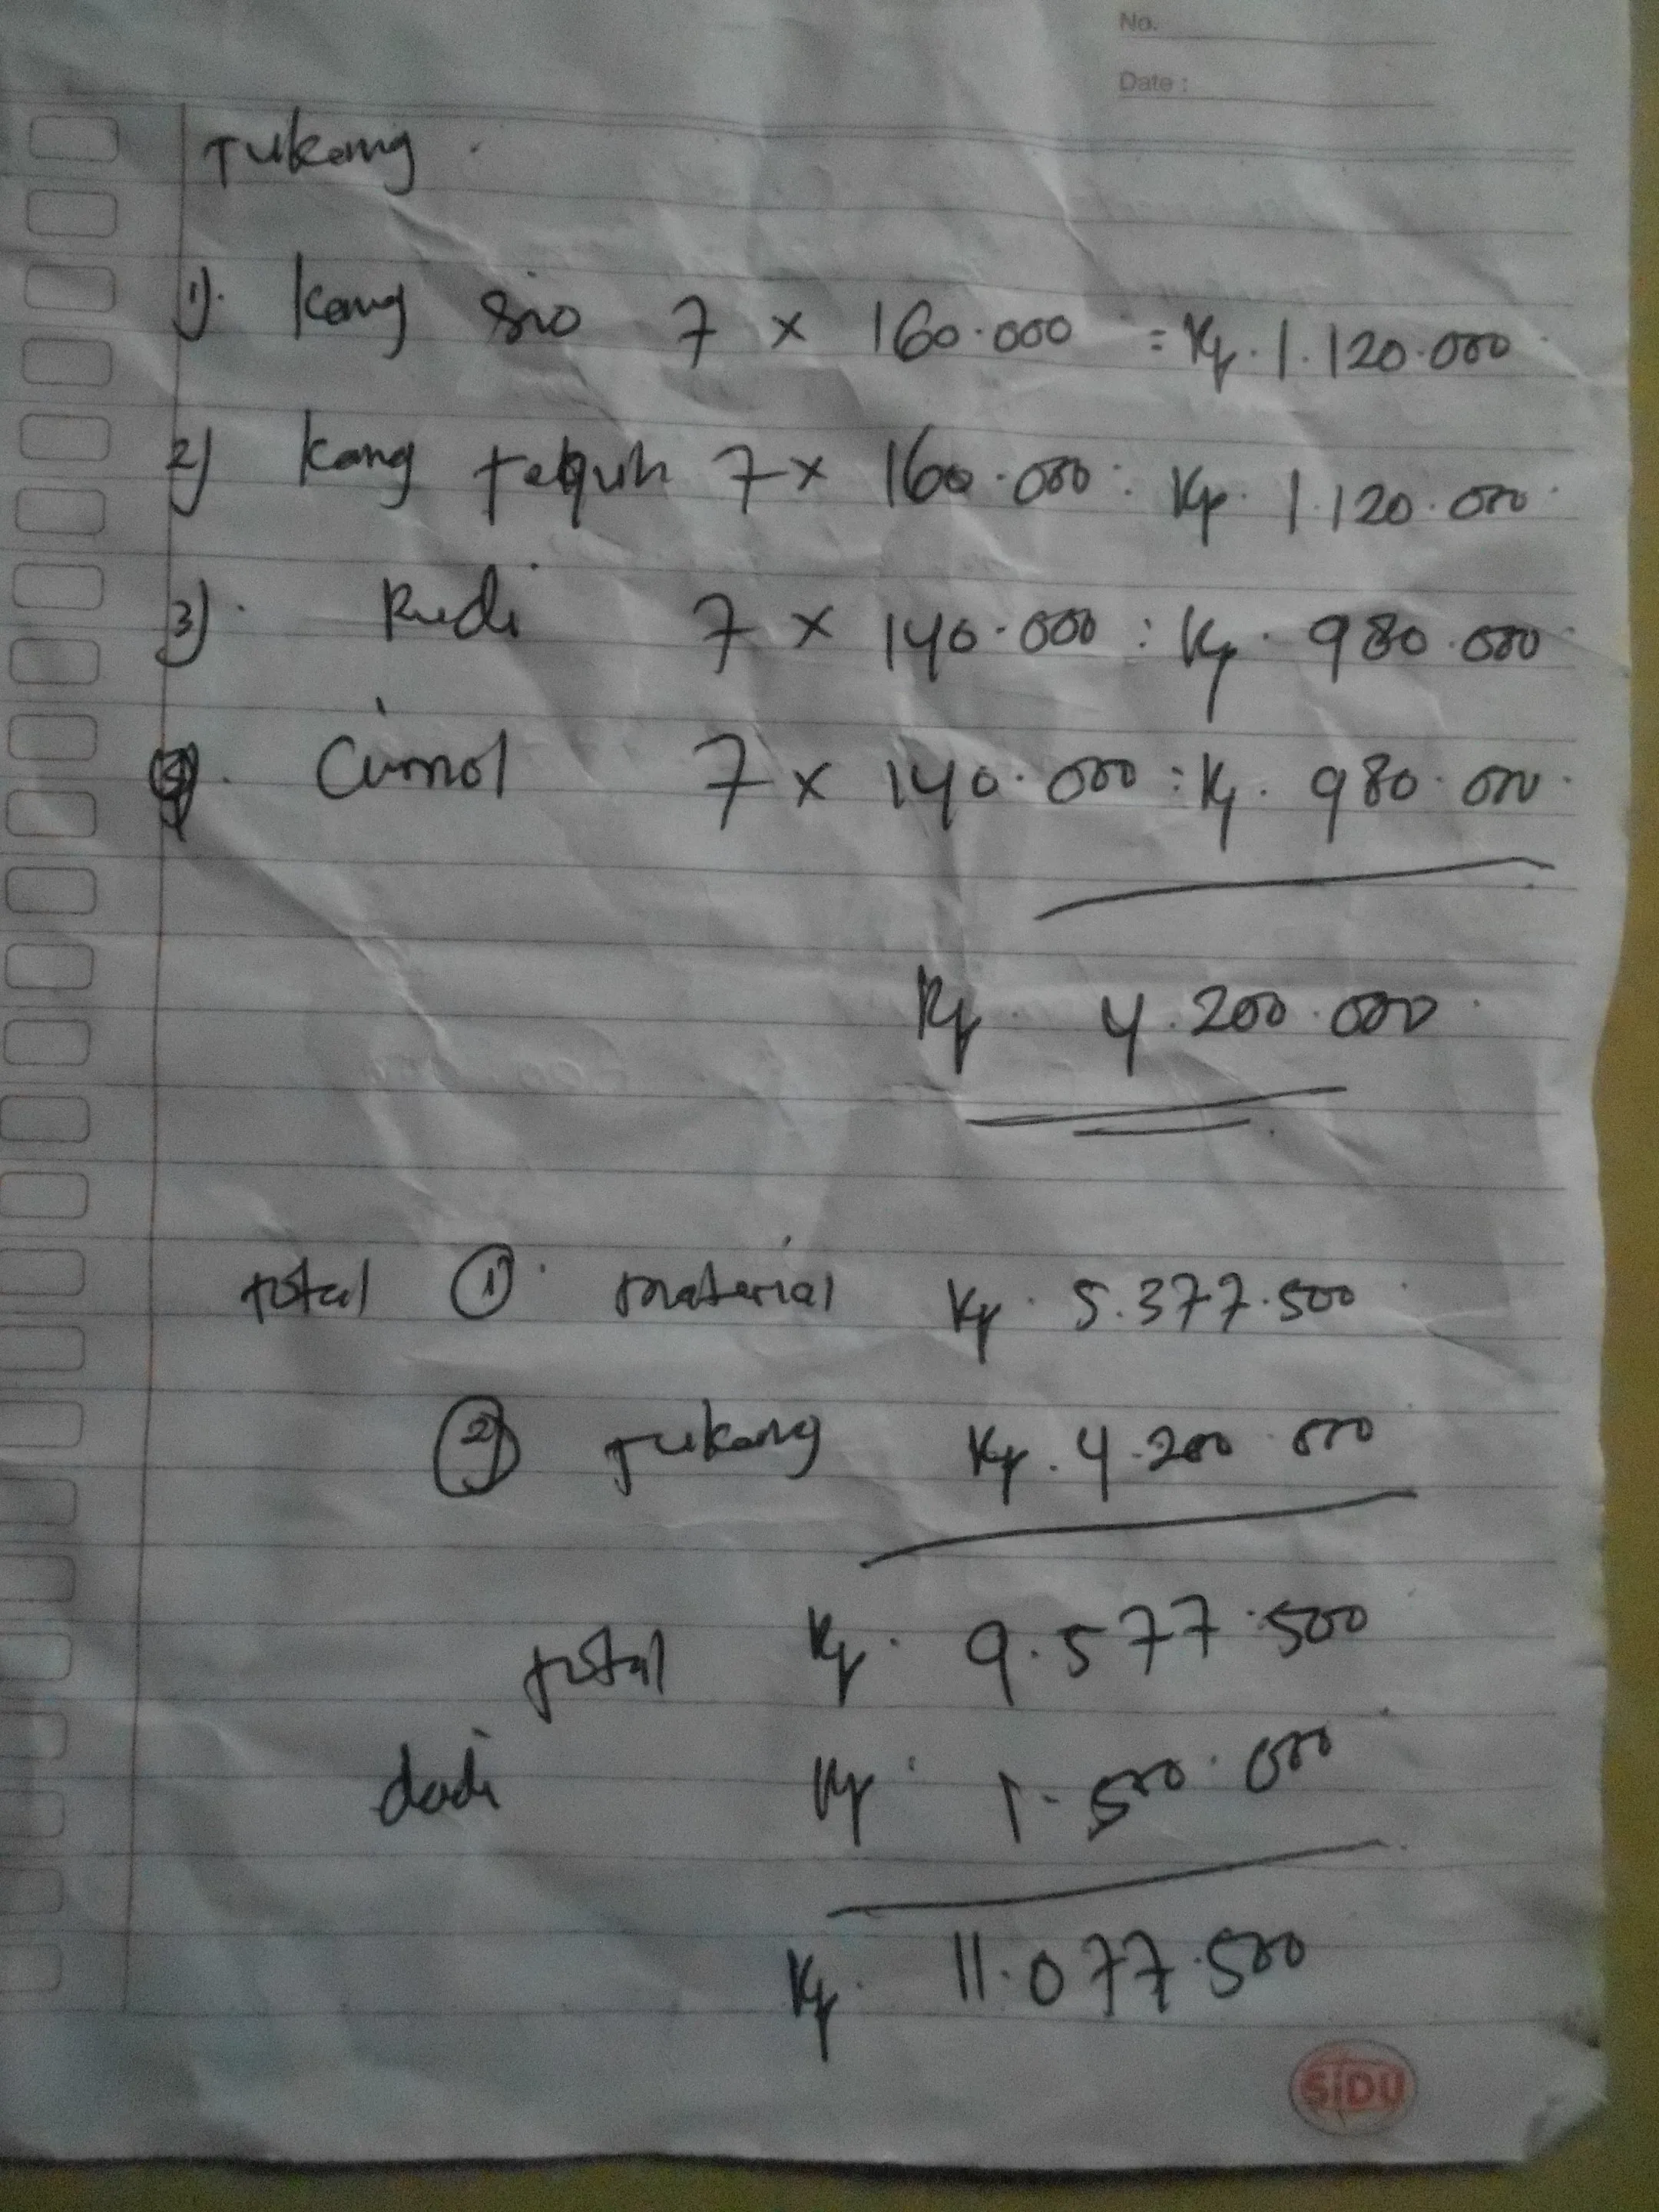 No.
Date :
Tukang
1). Kang Sio 7 x 160.000 = Rp. 1.120.000
2) Kang Teguh 7 x 160.000 : Rp. 1.120.000
3). Rudi 7 x 140.000 : Rp. 980.000
4). Cimol 7 x 140.000 : Rp. 980.000
Rp. 4.200.000
total 1). material Rp. 5.377.500
2) Tukang Rp. 4.200.000
total Rp. 9.577.500
dadi Rp. 1.500.000
Rp. 11.077.500
SiDU